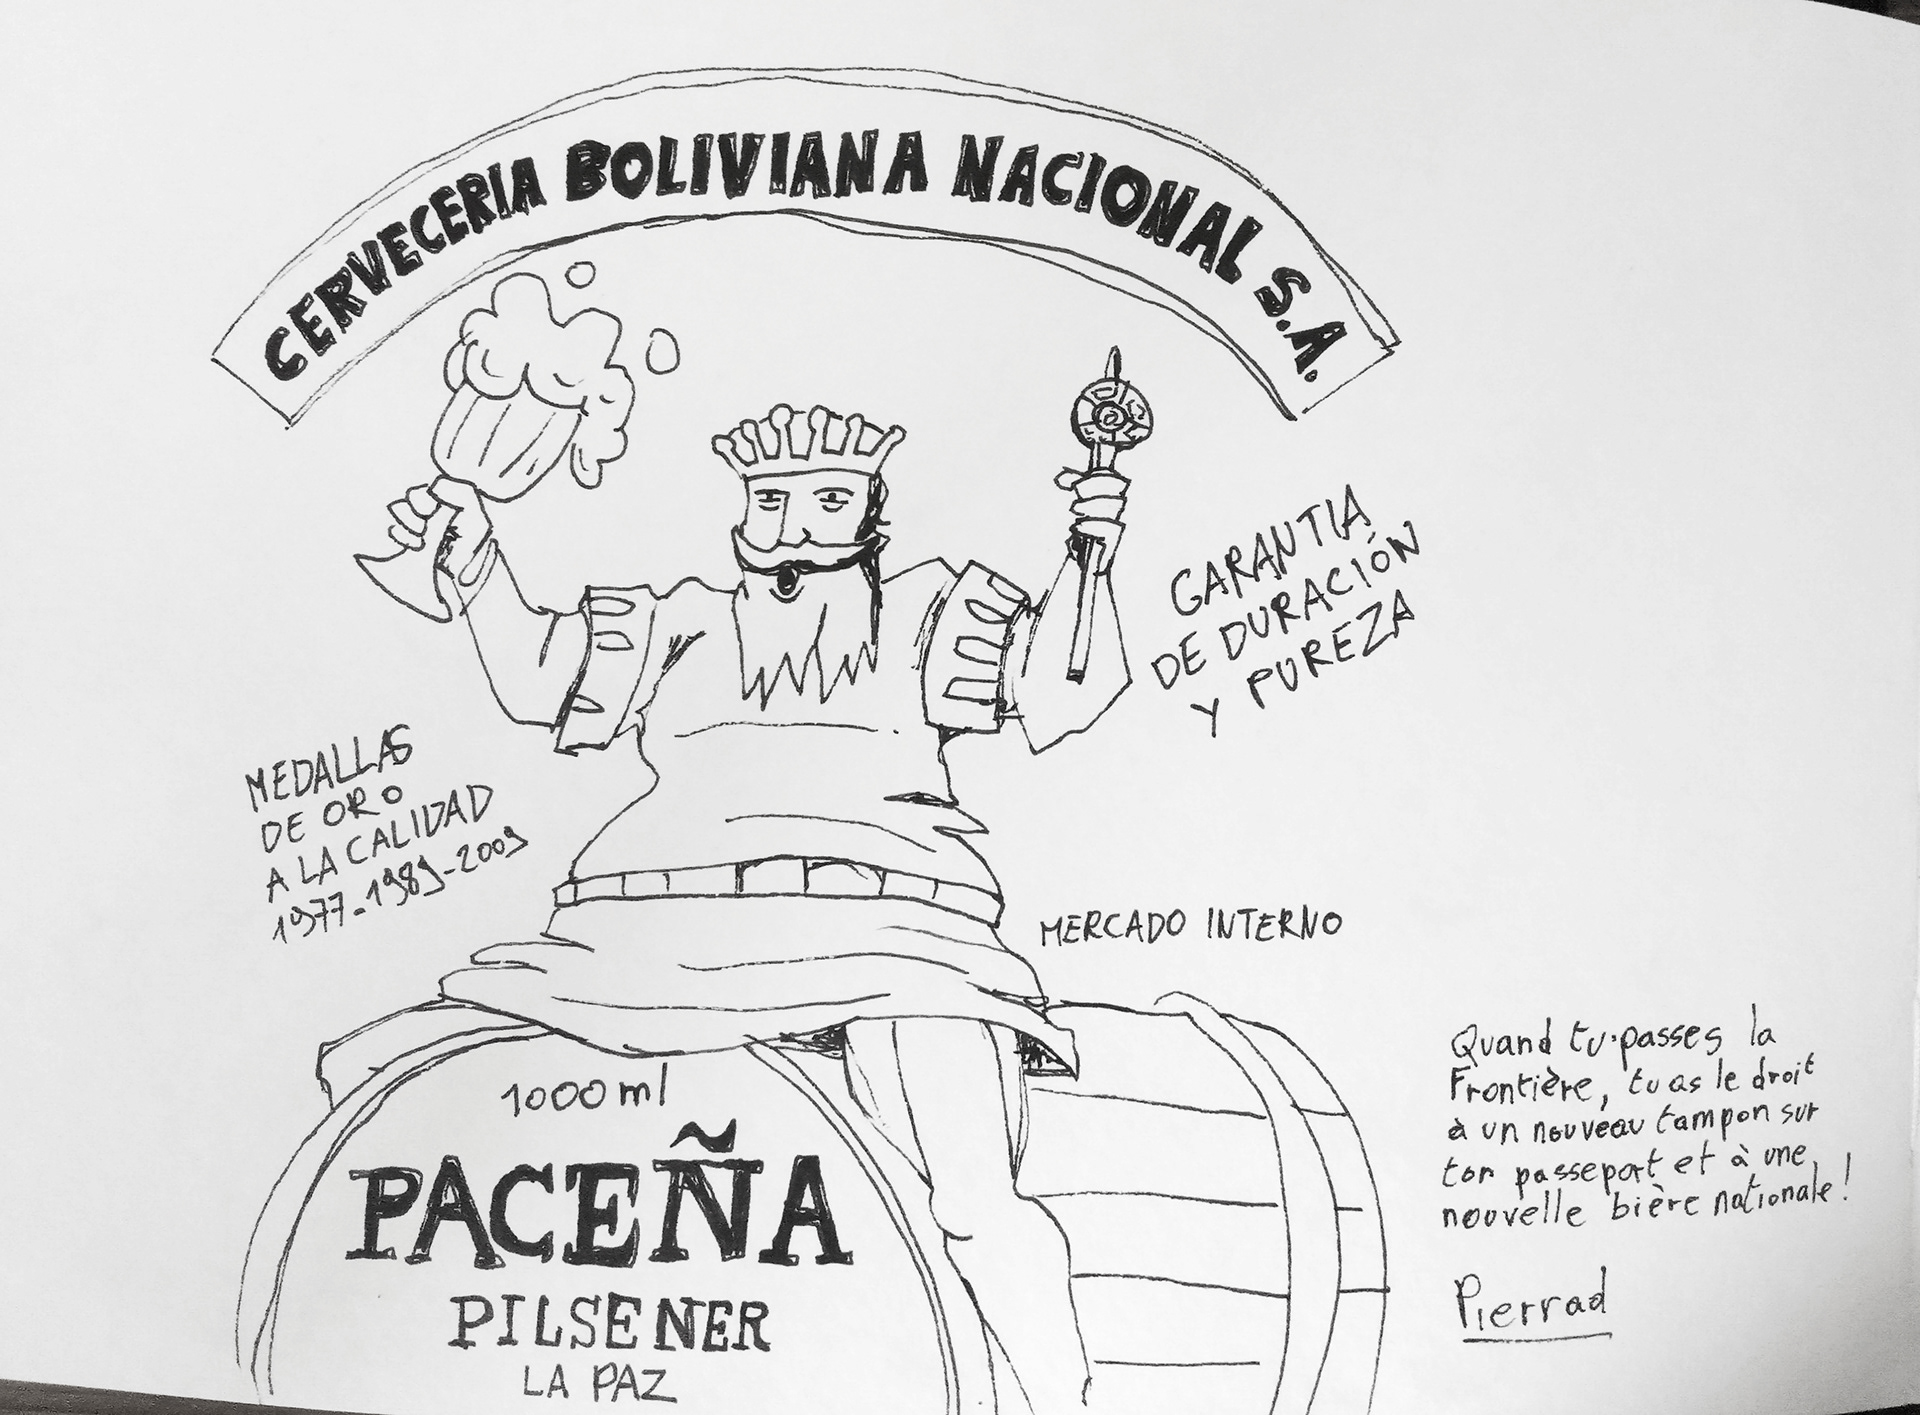 CERVECERIA BOLIVIANA NACIONAL S.A.
GARANTIA
DE DURACIÓN
Y PUREZA
MEDALLAS
DE ORO
A LA CALIDAD
1977-1989-2009
MERCADO INTERNO
1000 ml
PACEÑA
PILSENER
LA PAZ
Quand tu passes la
Frontière, tu as le droit
à un nouveau tampon sur
ton passeport et à une
nouvelle bière nationale!
Pierrad